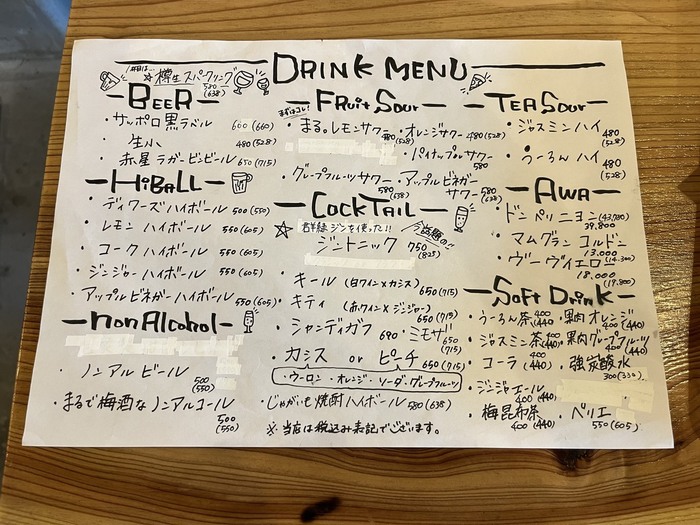 DRINK MENU
1杯目は…
☆樽生スパークリング
580
(638)
BEER
・サッポロ黒ラベル 600 (660)
生小 480 (528)
・赤星ラガービンビール 650 (715)
HiBALL
・ディワーズハイボール 500 (550)
・レモンハイボール 550 (605)
・コークハイボール 550 (605)
・ジンジャーハイボール 550 (605)
・アップルビネガーハイボール 550 (605)
non Alcohol
・ノンアルビール
500
(550)
・まるで梅酒なノンアルコール
500
(550)
Fruit Sour
まずはコレ!
・まる。レモンサワー 480 (528)
・オレンジサワー 480 (528)
・パイナップルサワー
580
・グレープフルーツサワー
580
(638)
・アップルビネガーサワー 580
(638)
COCKTAIL
今話題の!!
☆ 右芽緑ジンを使った!!
ジントニック 750
(825)
・キール (白ワイン×カシス) 650 (715)
・キティ (赤ワイン×ジンジャー) 650 (715)
・シャンディガフ 690
・ミモザ 650
(715)
・カシス or ピーチ 650 (715)
・ウーロン・オレンジ・ソーダ・グレープフルーツ
・じゃがいも焼酎ハイボール 580 (638)
※当店は税込み表記でございます。
TEA Sour
・ジャスミンハイ 480
(528)
・うーろんハイ 480
(528)
AWA
・ドンペリニヨン (43,780)
39.800
・マムグランコルドン
13.000
(14.300)
・ヴーヴィエロー
18.000
(19.800)
Soft Drink
・うーろん茶 400
(440)
・果肉オレンジ
400 (440)
・ジャスミン茶 400
(440)
・果肉グレープフルーツ
400 (440)
・コーラ 400
(440)
・強炭酸水
300 (330)
・ジンジャエール
400 (440)
・梅昆布茶
400 (440)
・ペリエ
550 (605)